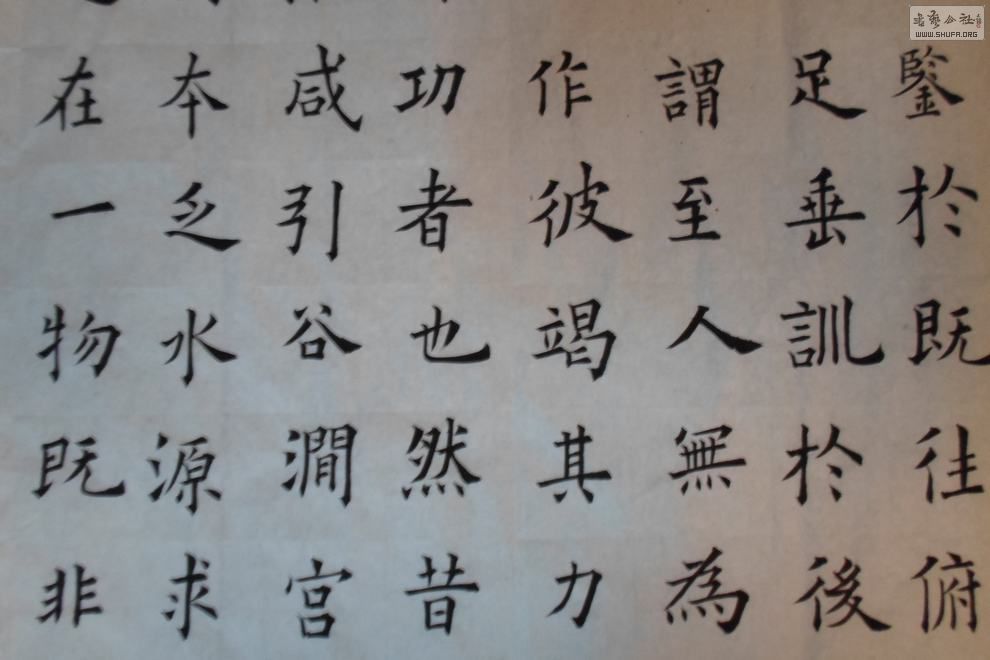 鑒於既往俯
足垂訓於後
謂至人無為
作彼竭其力
功者也然昔
咸引谷澗宮
本乏水源求
在一物既非
書藝公社
WWW.SHUFA.ORG